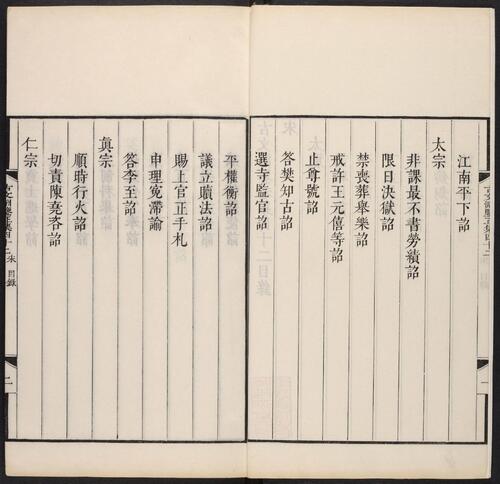 江南平下詔
太宗
非課最不書勞績詔
限日決獄詔
禁喪葬舉樂詔
戒許王元僖等詔
止尊號詔
答樊知古詔
選寺監官詔
平權衡詔
議立贖法詔
賜上官正手札
申理寃滯諭
答李至詔
眞宗
順時行火詔
切責陳堯咨詔
仁宗
目錄
二